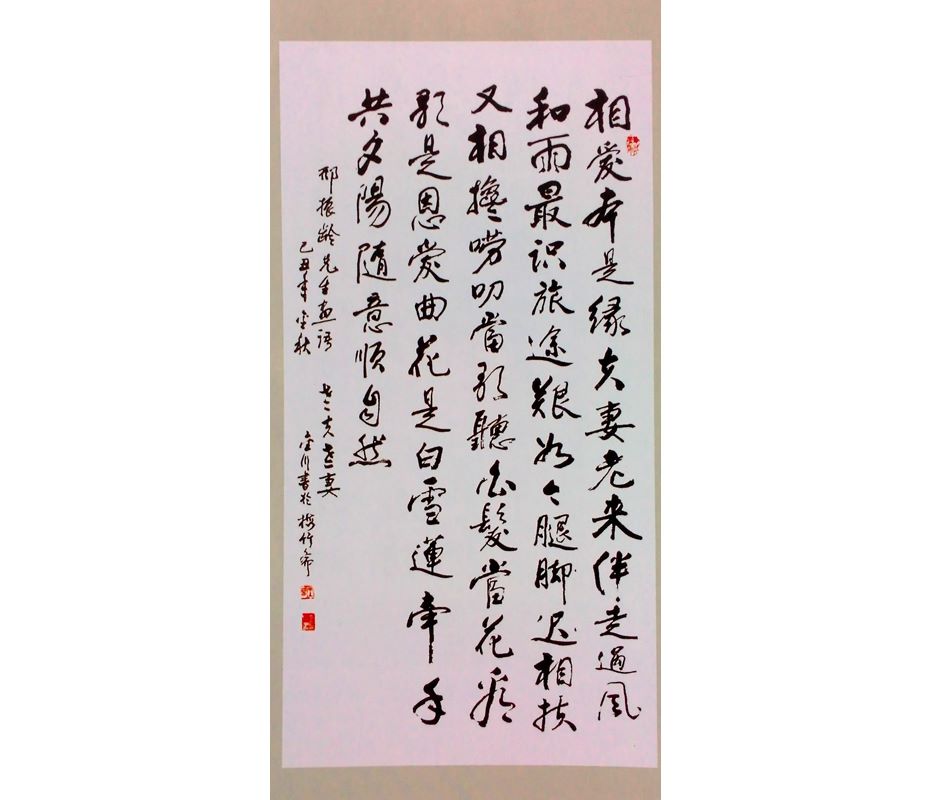 相愛本是緣夫妻老來伴走過風
和雨最识旅途艱如今腿脚迟相扶
又相攙唠叨當歌聽白髮當花看
歌是恩愛曲花是白雪蓮牽手
共夕陽隨意順自然
邢振龄先生画语 老夫老妻
己丑年金秋 金川書於梅竹斋